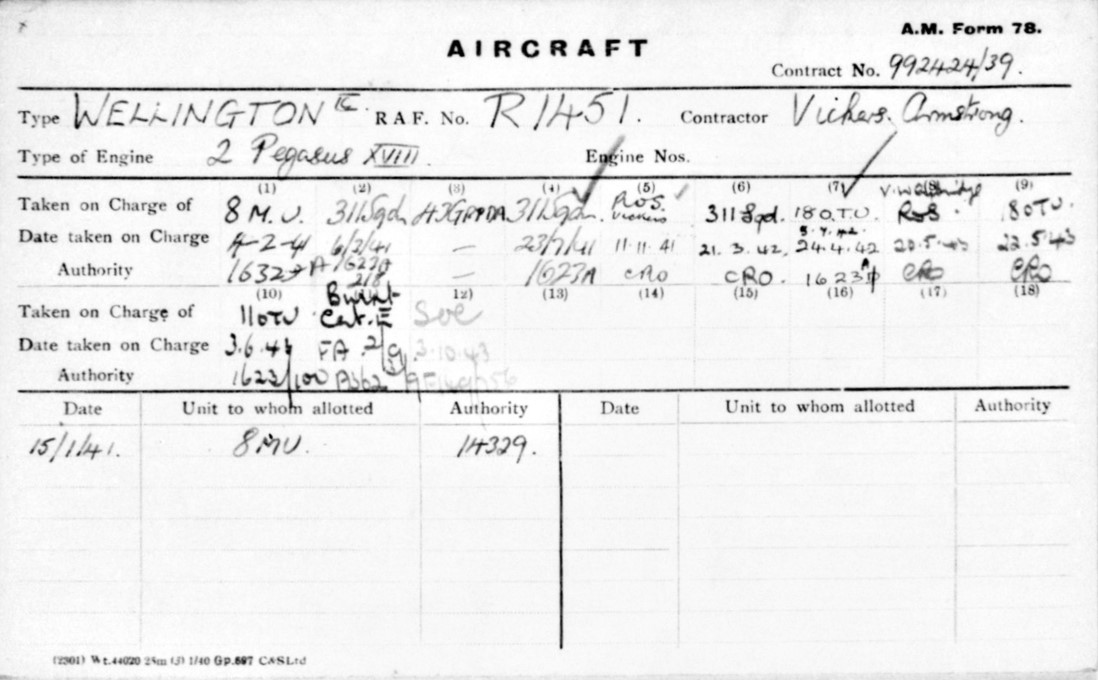 A.M. Form 78.
AIRCRAFT
Contract No. 992424/39.
Type WELLINGTON IC. R.A.F. No. R1451. Contractor Vickers. Armstrong.
Type of Engine 2 Pegasus XVIII Engine Nos.
(1) (2) (3) (4) (5) (6) (7) (8) (9)
Taken on Charge of 8 M.U. 311Sqdn 43GRPDA 311Sqdn. RoS. Vickers 311 Sqd. 18 O.T.U. RoS. 18OTU.
Date taken on Charge 4-2-41 6/2/41 — 23/7/41 11.11.41 21.3.42. 24.4.42 20.5.43 22.5.43
Authority 1632 A 1623A — 1623A CRO CRO. 1623A CRO CRO
(10) (12) (13) (14) (15) (16) (17) (18)
Taken on Charge of 11OTU Burnt Cat. E SOC
Date taken on Charge 3.6.43 FA 2/9/ 3.10.43
Authority 1623/100
Date Unit to whom allotted Authority Date Unit to whom allotted Authority
15/1/41. 8MU. 14329.
(2301) Wt.44020 25m (3) 1/40 Gp.697 C&SLtd